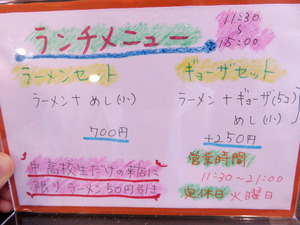 ランチメニュー
11:30
〜
15:00
ラーメンセット
ラーメン+めし(小)
700円
ギョーザセット
ラーメン+ギョーザ(5コ)
めし(小)
+250円
中高校生だけの来店に
限りラーメン50円引き
営業時間
11:30〜21:00
定休日 火曜日